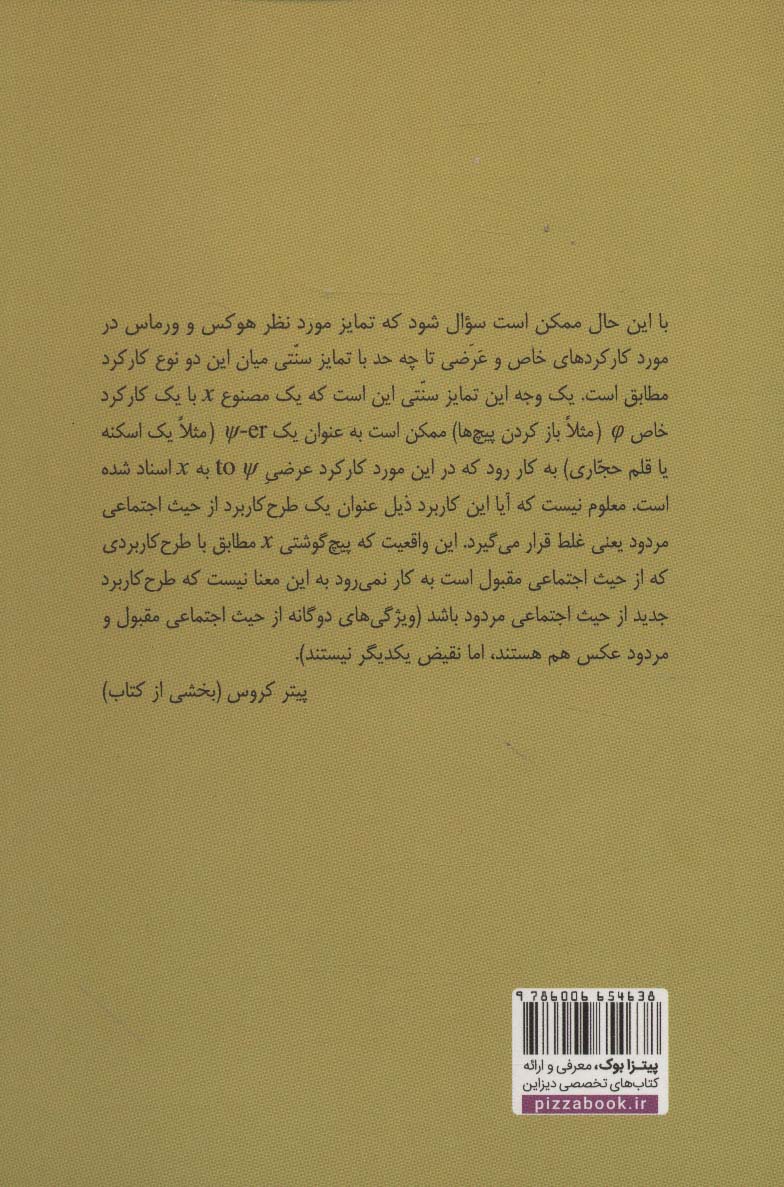 با این حال ممکن است سؤال شود که تمایز مورد نظر هوکس و ورماس در
مورد کارکردهای خاص و عَرَضی تا چه حد با تمایز سنّتی میان این دو نوع کارکرد
مطابق است. یک وجه این تمایز سنّتی این است که یک مصنوع x با یک کارکرد
خاص φ (مثلاً باز کردن پیچ‌ها) ممکن است به عنوان یک ψ-er (مثلاً یک اسکنه
یا قلم حجّاری) به کار رود که در این مورد کارکرد عرضیِ to ψ به x اسناد شده
است. معلوم نیست که آیا این کاربرد ذیل عنوان یک طرح‌کاربرد از حیث اجتماعی
مردود یعنی غلط قرار می‌گیرد. این واقعیت که پیچ‌گوشتی x مطابق با طرح‌کاربردی
که از حیث اجتماعی مقبول است به کار نمی‌رود به این معنا نیست که طرح‌کاربرد
جدید از حیث اجتماعی مردود باشد (ویژگی‌های دوگانه از حیث اجتماعی مقبول و
مردود عکس هم هستند، اما نقیض یکدیگر نیستند).
پیتر کروس (بخشی از کتاب)
9 786006 654638
پیتـزا بوک، معرفی و ارائه
کتاب‌های تخصصی دیزاین
pizzabook.ir